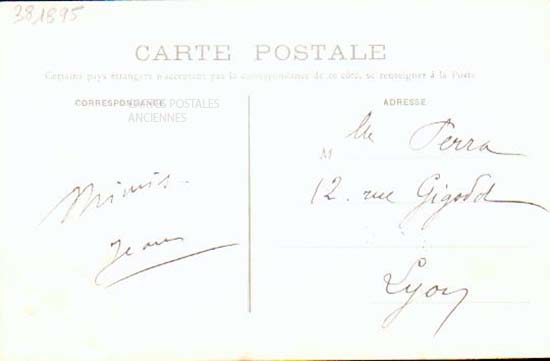 381895
CARTE POSTALE
Certains pays étrangers n'acceptant pas la correspondance de ce côté, se renseigner à la Poste
CORRESPONDANCE
CARTES POSTALES
ANCIENNES
ADRESSE
Mlle Perra
12. rue Gigodot
Lyon
Mimis
Jean